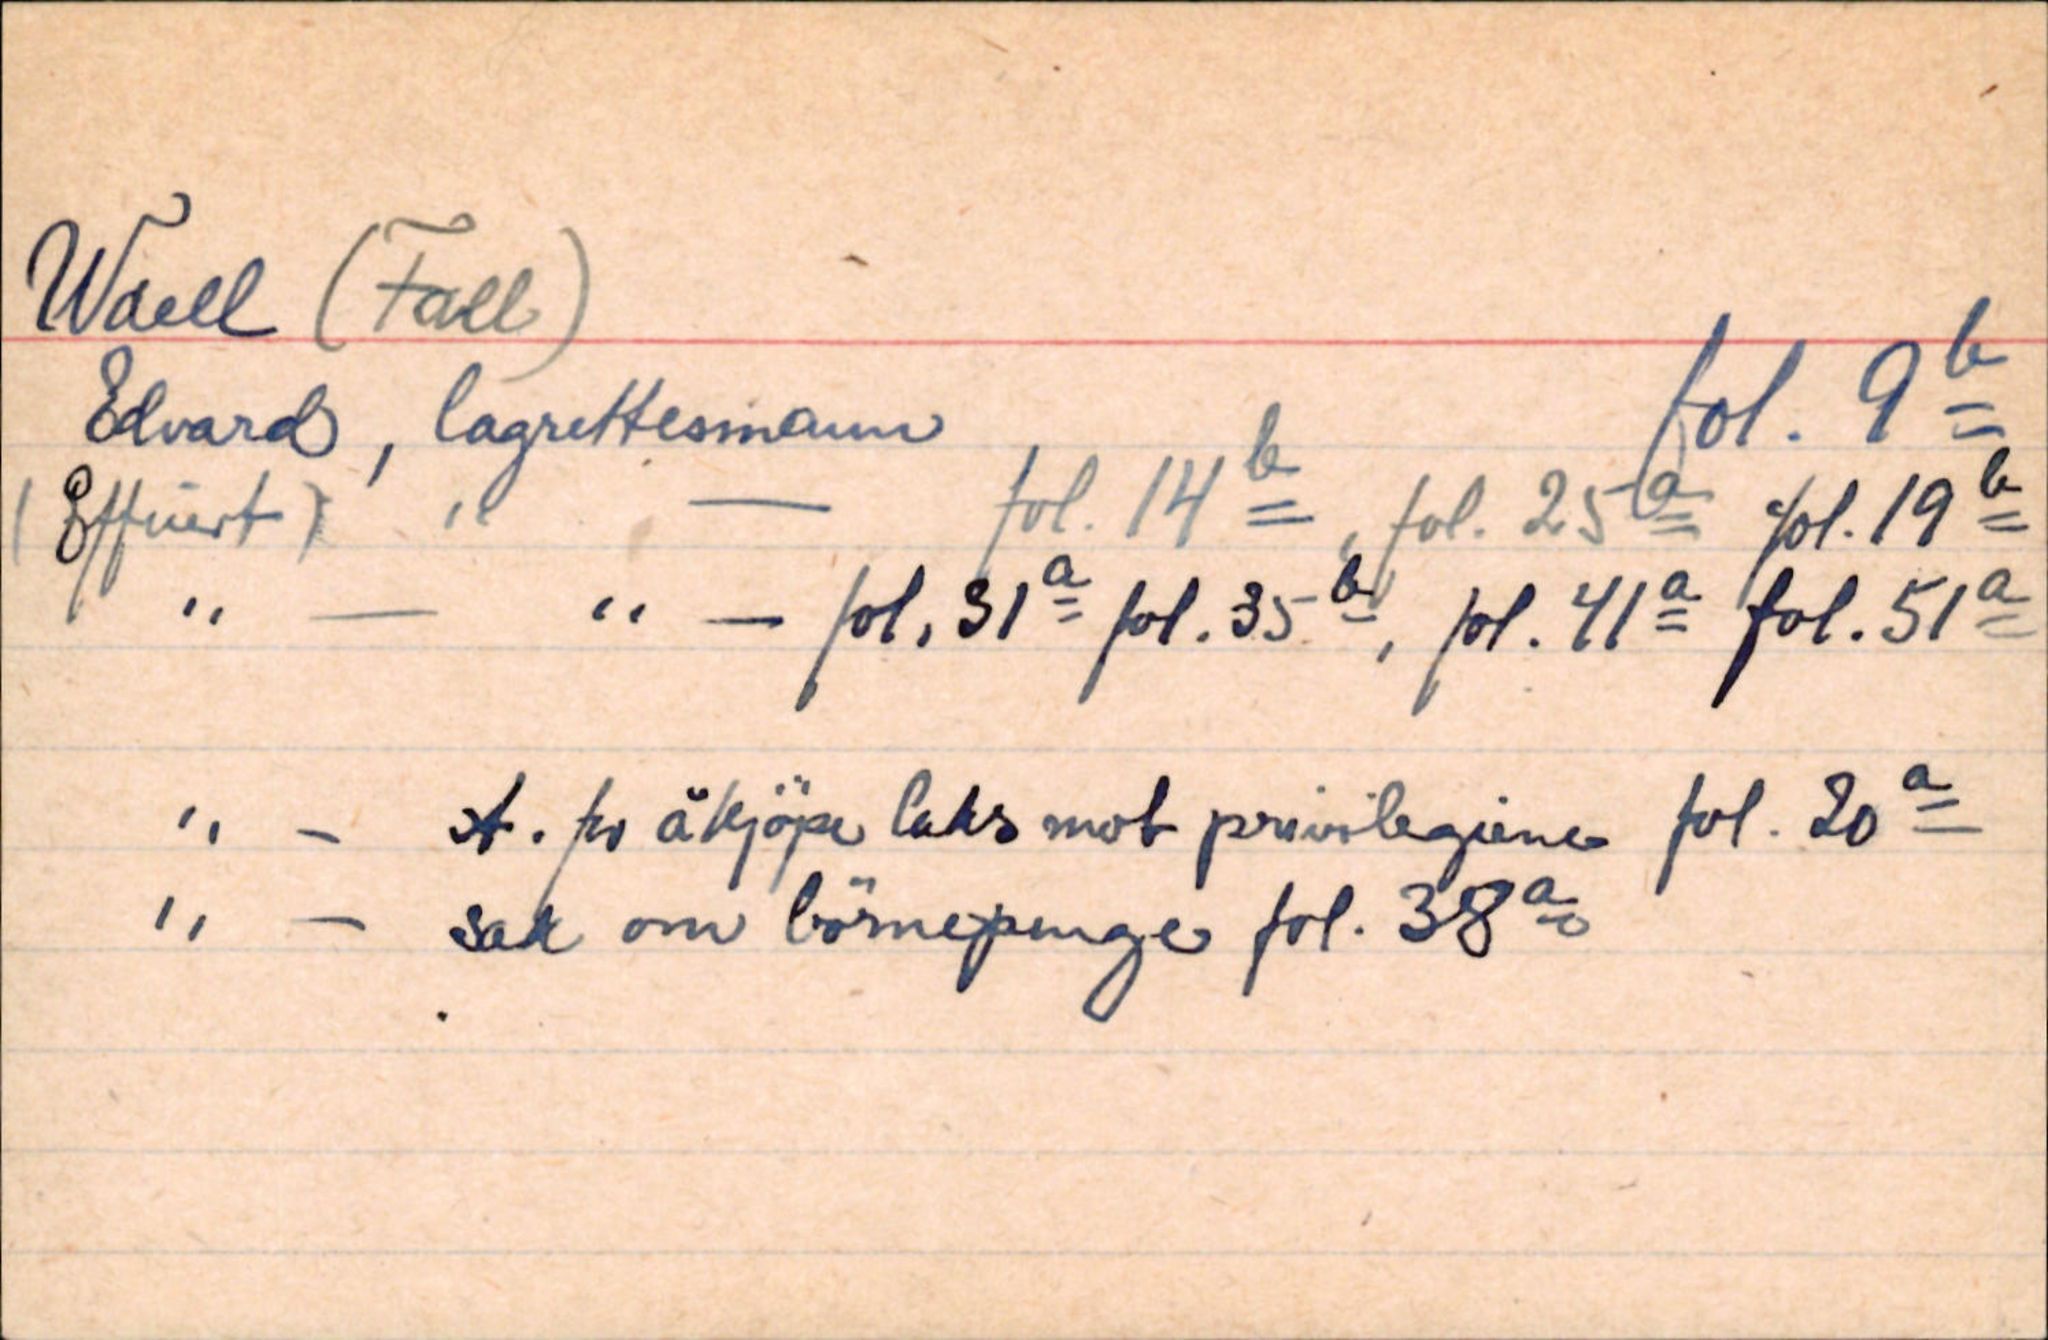 Waell (Fall)
Edvard, lagrettesmann fol. 9b
(Effuert) " — fol. 14b, fol. 25a fol. 19b
" — " — fol. 31a fol. 35b, fol. 41a fol. 51a
" - st. for å kjöpe laks mot privilegiene fol. 20a
" - sak om börnepenge fol. 38a